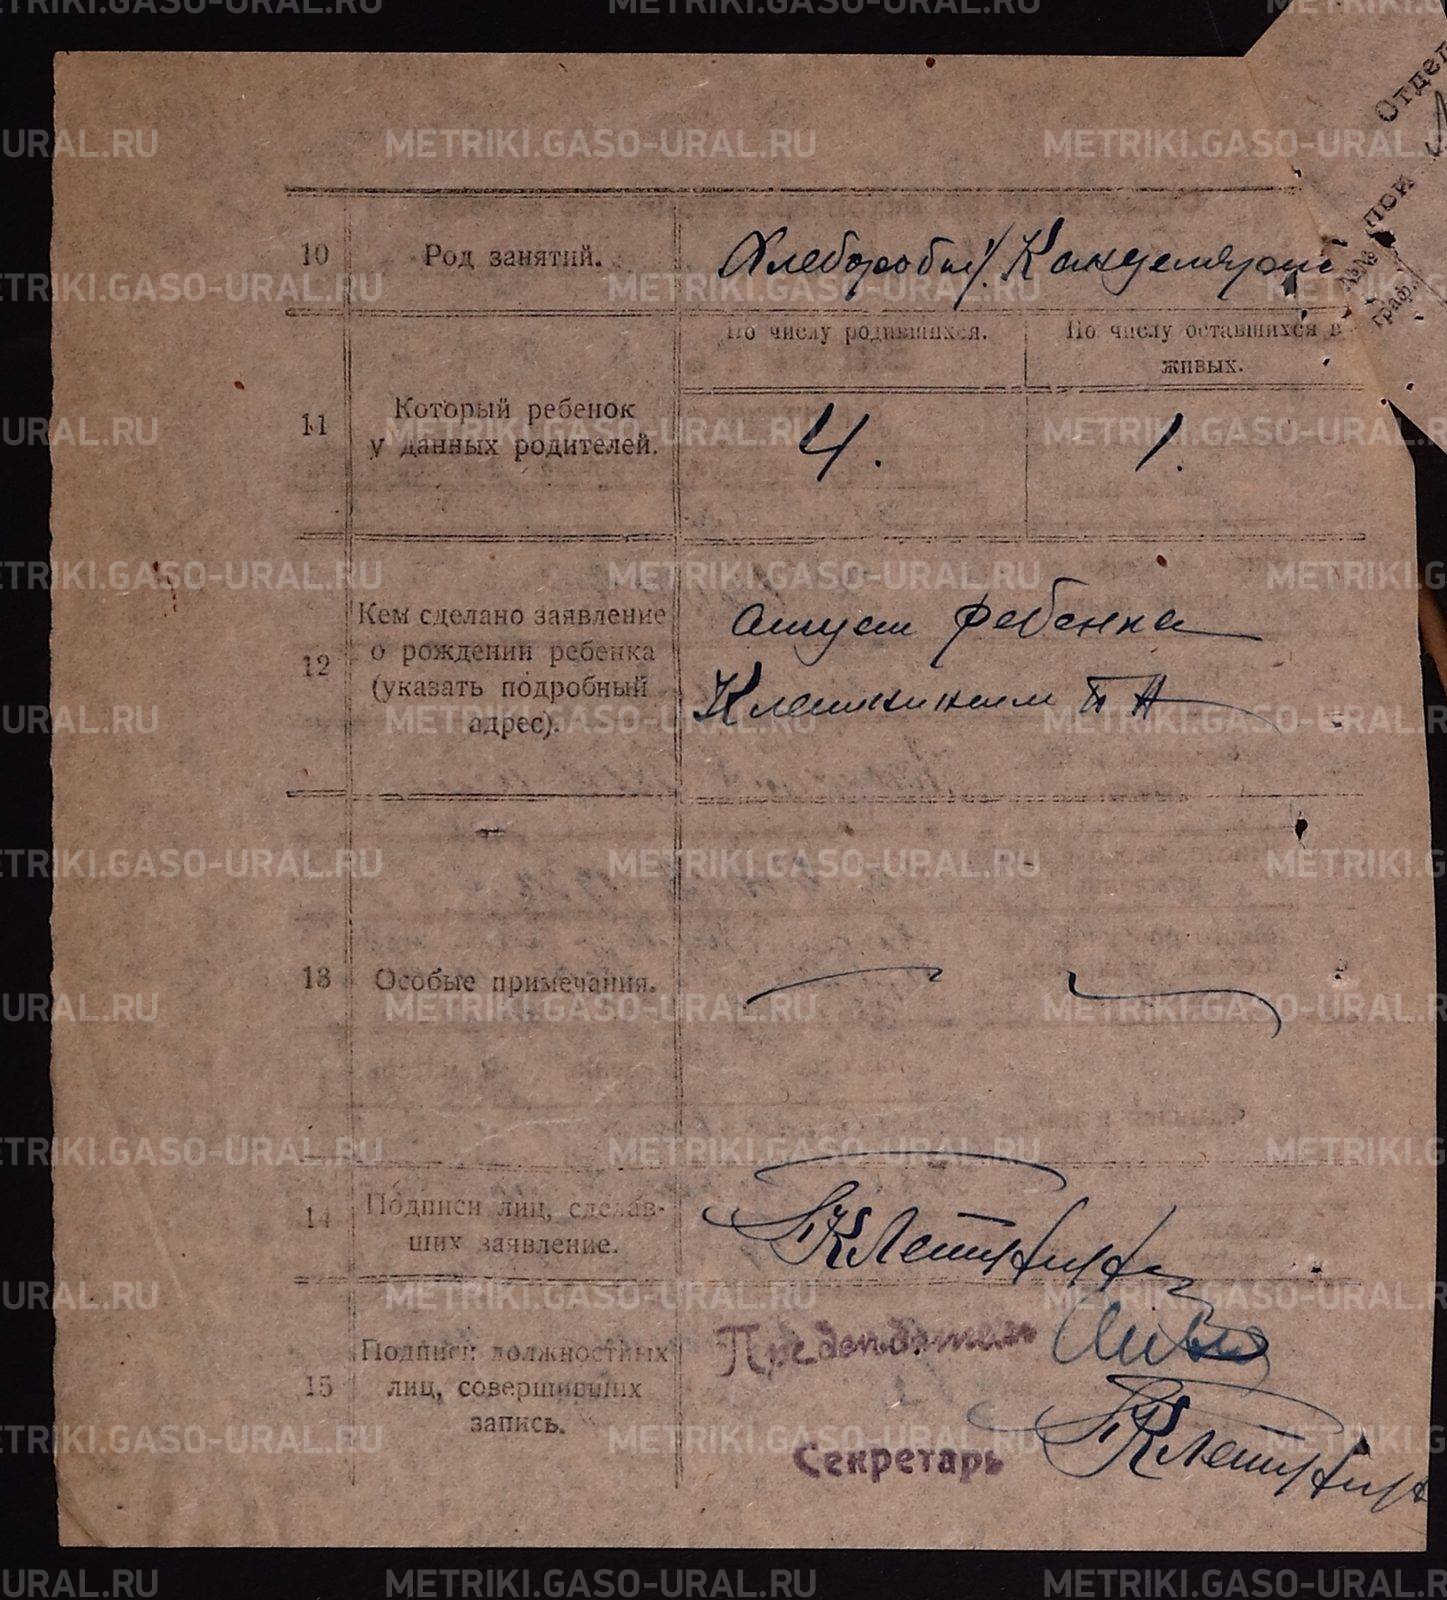 10 Род занятий. Хлеборобы/. Канцеляр
По числу родившихся. По числу оставшихся в живых.
11 Который ребенок у данных родителей. 4. 1.
12 Кем сделано заявление о рождении ребенка (указать подробный адрес).
отцем ребенка
Клепининым П А
13 Особые примечания.
14 Подписи лиц, сделавших заявление. ПКлепинин
15 Подписи должностных лиц, совершивших запись.
Председатель
Секретарь ПКлепинин
Отдел
при
№№
граф.
METRIKI.GASO-URAL.RU